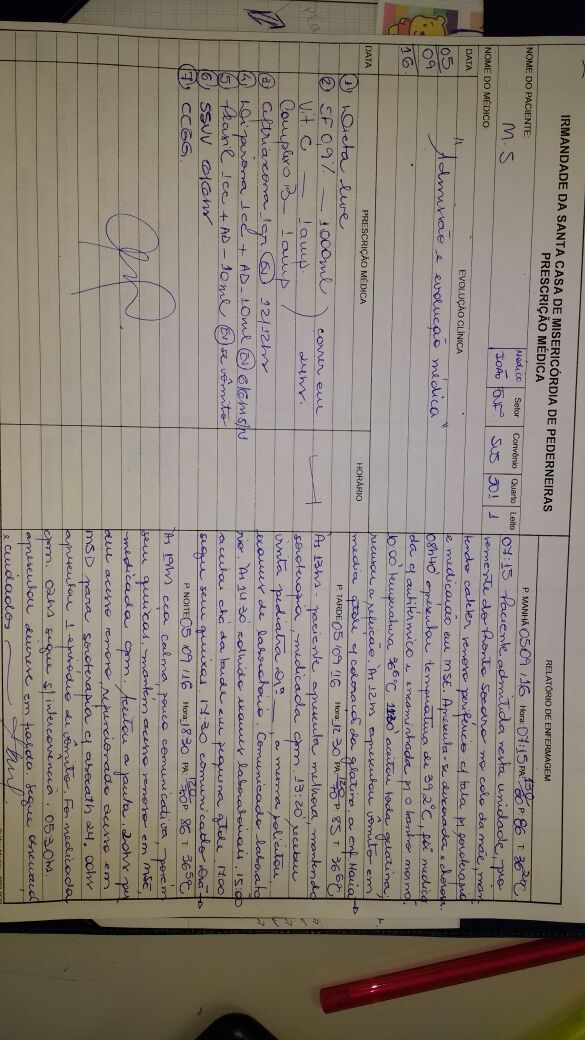 IRMANDADE DA SANTA CASA DE MISERICÓRDIA DE PEDERNEIRAS
PRESCRIÇÃO MÉDICA
NOME DO PACIENTE: M.S
NOME DO MÉDICO:
Médico Setor Convênio Quarto Leito
JOÃO SUS 301 1
DATA EVOLUÇÃO CLÍNICA
05
09
16
"Admissão e evolução médica"
DATA PRESCRIÇÃO MÉDICA HORÁRIO
① Dieta leve
② SF 0,9% — 1000ml
Vit C — 1 amp
Complexo B — 1 amp
correr em
24hr.
③ Ceftriaxona 1gr EV 12/12hr
④ Dipirona 1cc + AD - 10ml EV 6/6hr S/N
⑤ Plasil 1cc + AD - 10ml EV se vômito
⑥ SSVV 6/6hr
⑦ CCGG
RELATÓRIO DE ENFERMAGEM
P. MANHÃ 05/09/16 Hora: 07:15 PA: P: 86 T:
07:15 Paciente admitida nesta unidade, pro
veniente do Pronto Socorro no colo da mãe, man
tendo cateter venoso periférico c/ tala p/ soroterapia
e medicação em MSE. Apresenta-se descorada e chorosa.
08h40 apresentou temperatura de 39,2°C, foi medica
da c/ antitérmico e encaminhada p/ o banho morno.
10:00 temperatura 36,6°C. 11:30 aceitou toda gelatina,
recusou a refeição. Às 12hr apresentou vômito em
média qtde c/ coloração da gelatina
P. TARDE 05/09/16 Hora: 12:30 PA: P: 85 T:
Às 13hr - paciente apresenta melhora, mantendo
soroterapia, medicada cpm. 13:20 recebeu
visita pediatra Drª —, a mesma solicitou
exames de laboratório. Comunicado laborató
rio. Às 14:30 colhido exames laboratoriais. 15:00
aceitou chá da tarde em pequena qtde 17:00
segue sem queixas. 17:30 comunicado
P. NOITE 05/09/16 Hora: 18:30 PA: P: 86 T: 36,5°C
Às 19hr calma pouco comunicativa, porém
sem queixas. mantém acesso venoso em MSE,
medicada cpm. Aceitou a janta. 20hr
acesso venoso repuncionado acesso em
MSD para soroterapia c/ abocath 24. 00hr
apresentou 1 episódio de vômito. Foi medicada
cpm. 02hr segue s/ intercorrência. 05:30hr
apresentou diurese em fralda segue observação
e cuidados